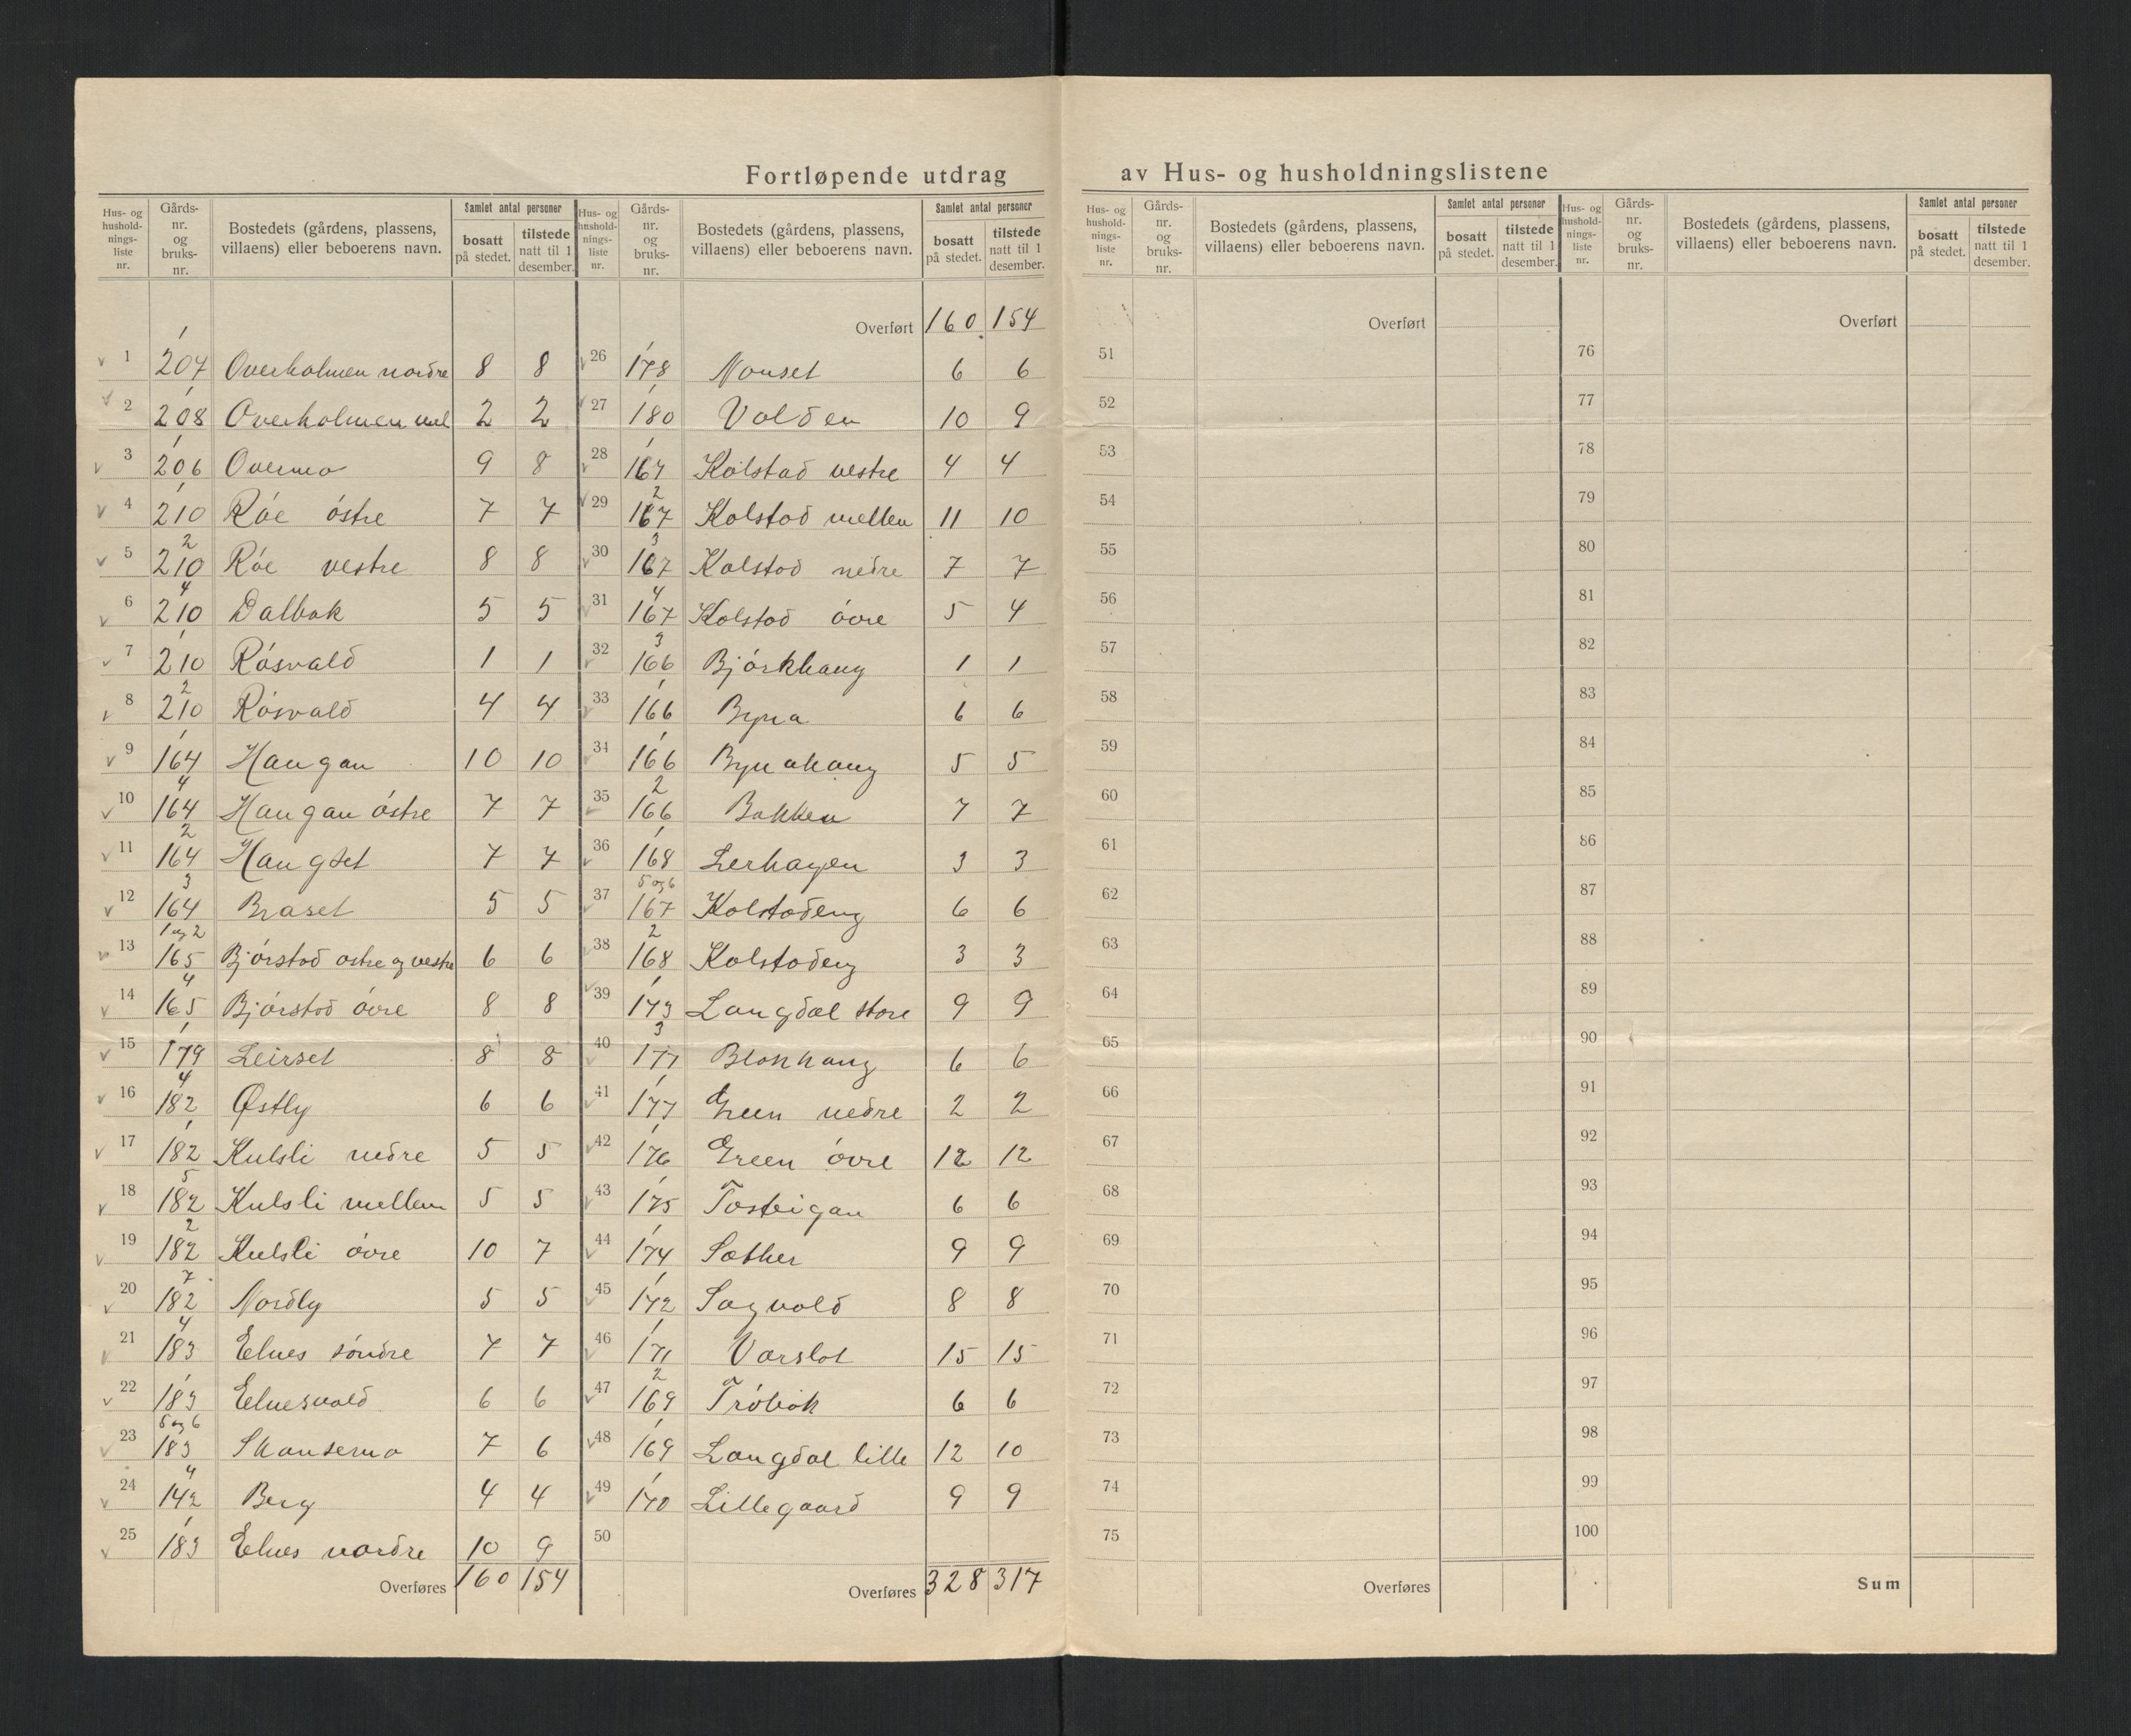 Fortløpende utdrag av Hus- og husholdningslistene
Hus- og husholdningsliste nr. | Gårdsnr. og bruksnr. | Bostedets (gårdens, plassens, villaens) eller beboerens navn. | Samlet antal personer | bosatt på stedet. | tilstede natt til 1 desember.
1 | 207 1 | Overholmen nordre | 8 | 8
2 | 208 1 | Overholmen mel | 2 | 2
3 | 206 1 | Overmo | 9 | 8
4 | 210 1 | Róe óstre | 7 | 7
5 | 210 2 | Róe vestre | 8 | 8
6 | 210 4 | Dalbak | 5 | 5
7 | 210 1 | Rósvald | 1 | 1
8 | 210 2 | Rósvald | 4 | 4
9 | 164 1 | Haugan | 10 | 10
10 | 164 4 | Haugan óstre | 7 | 7
11 | 164 2 | Haugset | 7 | 7
12 | 164 3 | Braset | 5 | 5
13 | 165 1 og 2 | Bjórstad ostre og vestre | 6 | 6
14 | 165 4 | Bjórstad óvre | 8 | 8
15 | 179 1 | Leirset | 8 | 8
16 | 182 4 | Østly | 6 | 6
17 | 182 1 | Kulsli nedre | 5 | 5
18 | 182 5 | Kulsli mellem | 5 | 5
19 | 182 2 | Kulsli óvre | 10 | 7
20 | 182 7 | Nordly | 5 | 5
21 | 183 4 | Elnes sóndre | 7 | 7
22 | 183 1 | Elnesvold | 6 | 6
23 | 183 5 og 6 | Skansemo | 7 | 6
24 | 142 4 | Berg | 4 | 4
25 | 183 1 | Elnes nordre | 10 | 9
Overføres 160 | 154
Hus- og husholdningsliste nr. | Gårdsnr. og bruksnr. | Bostedets (gårdens, plassens, villaens) eller beboerens navn. | Samlet antal personer | bosatt på stedet. | tilstede natt til 1 desember.
Overført 160 | 154
26 | 178 1 | Nonset | 6 | 6
27 | 180 1 | Volden | 10 | 9
28 | 167 1 | Kolstad vestre | 4 | 4
29 | 167 2 | Kolstad mellem | 11 | 10
30 | 167 3 | Kolstad nedre | 7 | 7
31 | 167 4 | Kolstad óvre | 5 | 4
32 | 166 3 | Bjórkhaug | 1 | 1
33 | 166 1 | Byna | 6 | 6
34 | 166 1 | Bynahaug | 5 | 5
35 | 166 2 | Bakken | 7 | 7
36 | 168 1 | Lerhagen | 3 | 3
37 | 167 5 og 6 | Kolstadeng | 6 | 6
38 | 168 2 | Kolstadeng | 3 | 3
39 | 173 | Langdal store | 9 | 9
40 | 177 3 | Blokhaug | 6 | 6
41 | 177 1 | Green nedre | 2 | 2
42 | 176 1 | Green óvre | 12 | 12
43 | 175 1 | Tosteigan | 6 | 6
44 | 174 1 | Sæther | 9 | 9
45 | 172 1 | Sagvold | 8 | 8
46 | 171 1 | Varslot | 15 | 15
47 | 169 2 | Tróbak | 6 | 6
48 | 169 1 | Langdal lille | 12 | 10
49 | 170 1 | Lillegaard | 9 | 9
50
Overføres 328 | 317
Hus- og husholdningsliste nr. | Gårdsnr. og bruksnr. | Bostedets (gårdens, plassens, villaens) eller beboerens navn. | Samlet antal personer | bosatt på stedet. | tilstede natt til 1 desember.
Overført
51
52
53
54
55
56
57
58
59
60
61
62
63
64
65
66
67
68
69
70
71
72
73
74
75
Overføres
Hus- og husholdningsliste nr. | Gårdsnr. og bruksnr. | Bostedets (gårdens, plassens, villaens) eller beboerens navn. | Samlet antal personer | bosatt på stedet. | tilstede natt til 1 desember.
Overført
76
77
78
79
80
81
82
83
84
85
86
87
88
89
90
91
92
93
94
95
96
97
98
99
100
Sum